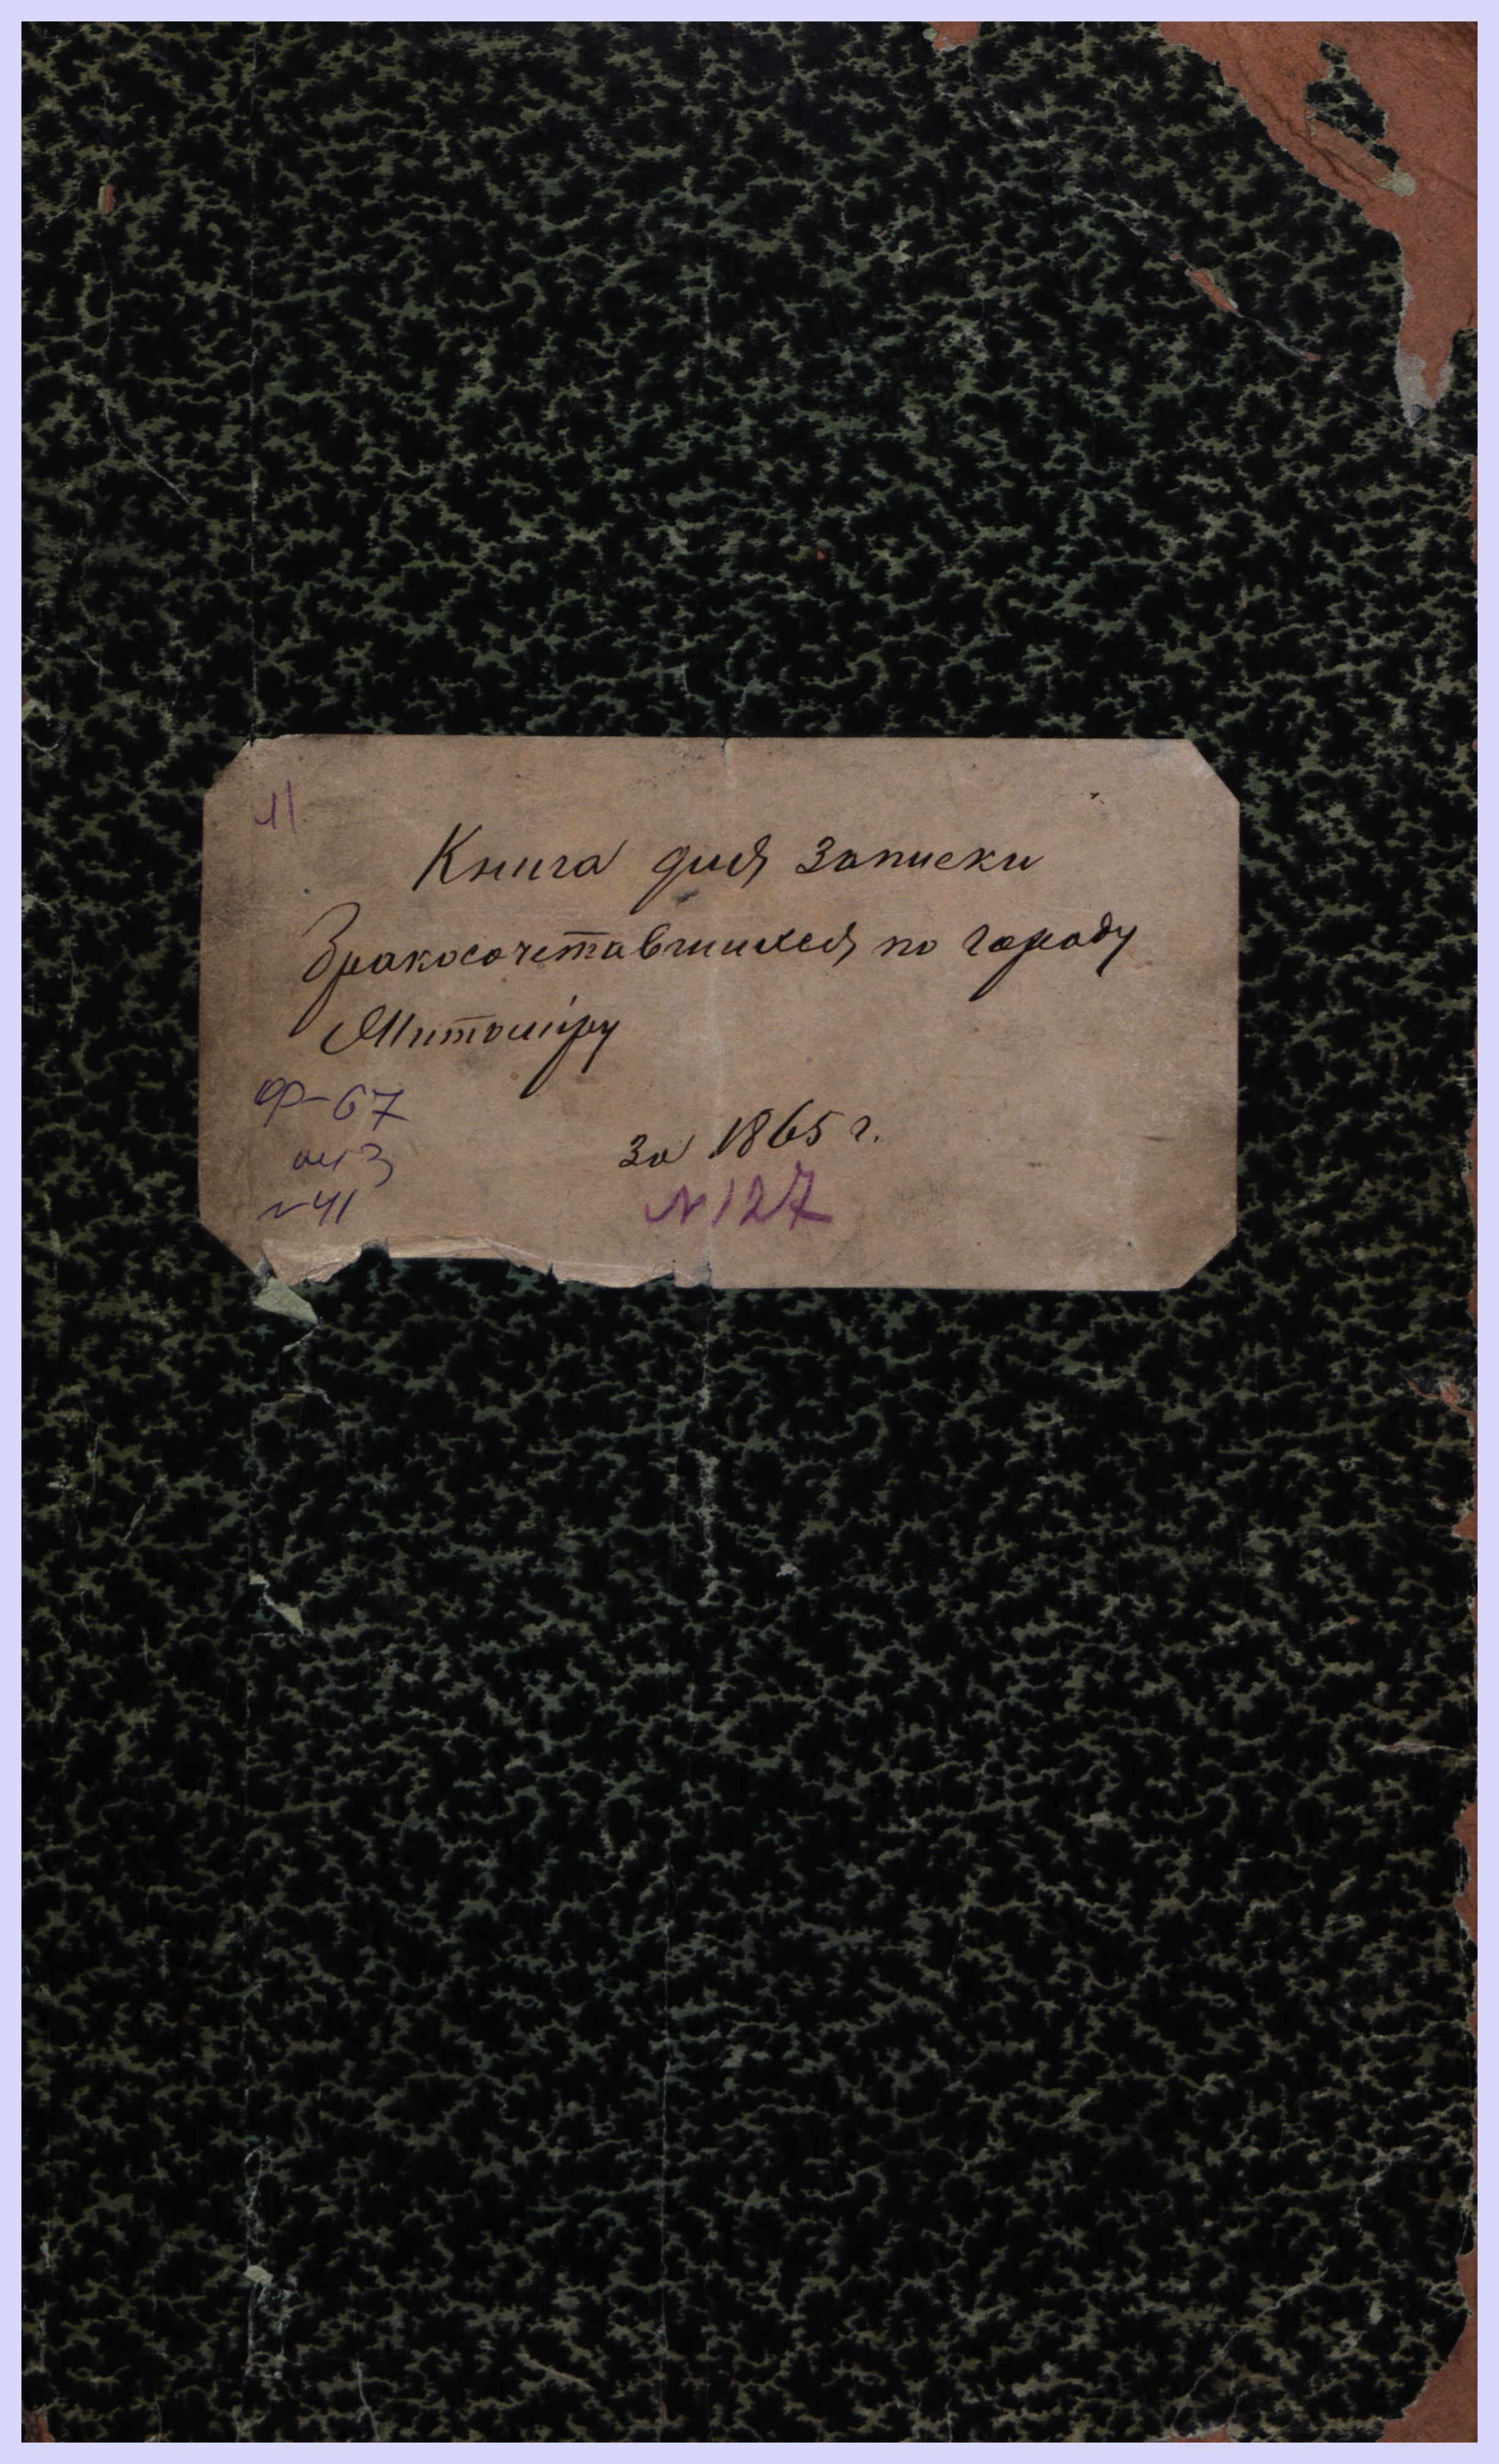 41
Книга для записки
Бракосочетавшихся по городу
Житоміру
Ф-67
оп 3
№41
за 1865 г.
№127